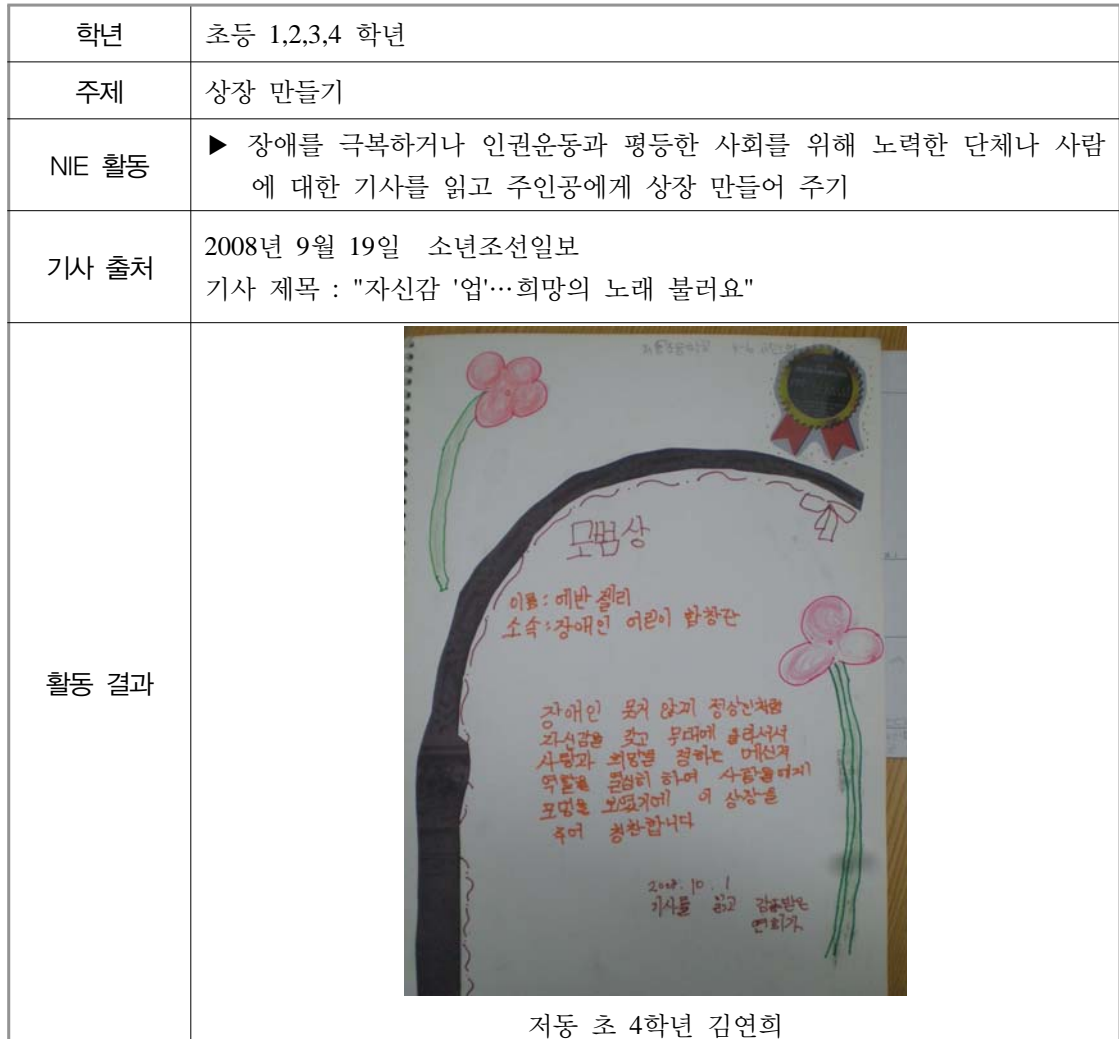 학년
초등 1,2,3,4 학년
주제
상장 만들기
NIE 활동
▶ 장애를 극복하거나 인권운동과 평등한 사회를 위해 노력한 단체나 사람
에 대한 기사를 읽고 주인공에게 상장 만들어 주기
기사 출처
2008년 9월 19일 소년조선일보
기사 제목 : "자신감 '업'…희망의 노래 불러요"
활동 결과
모범상
이름 : 에반젤리
소속 : 장애인 어린이 합창단
장애인 못지 않게 정상인처럼
자신감을 갖고 무대에 올라서서
사랑과 희망을 전하는 메신져
역할을 열심히 하여 사람들에게
모범을 보였기에 이 상장을
주어 칭찬합니다
2008. 10. 1
기사를 읽고 감동받은
연희가
저동 초 4학년 김연희